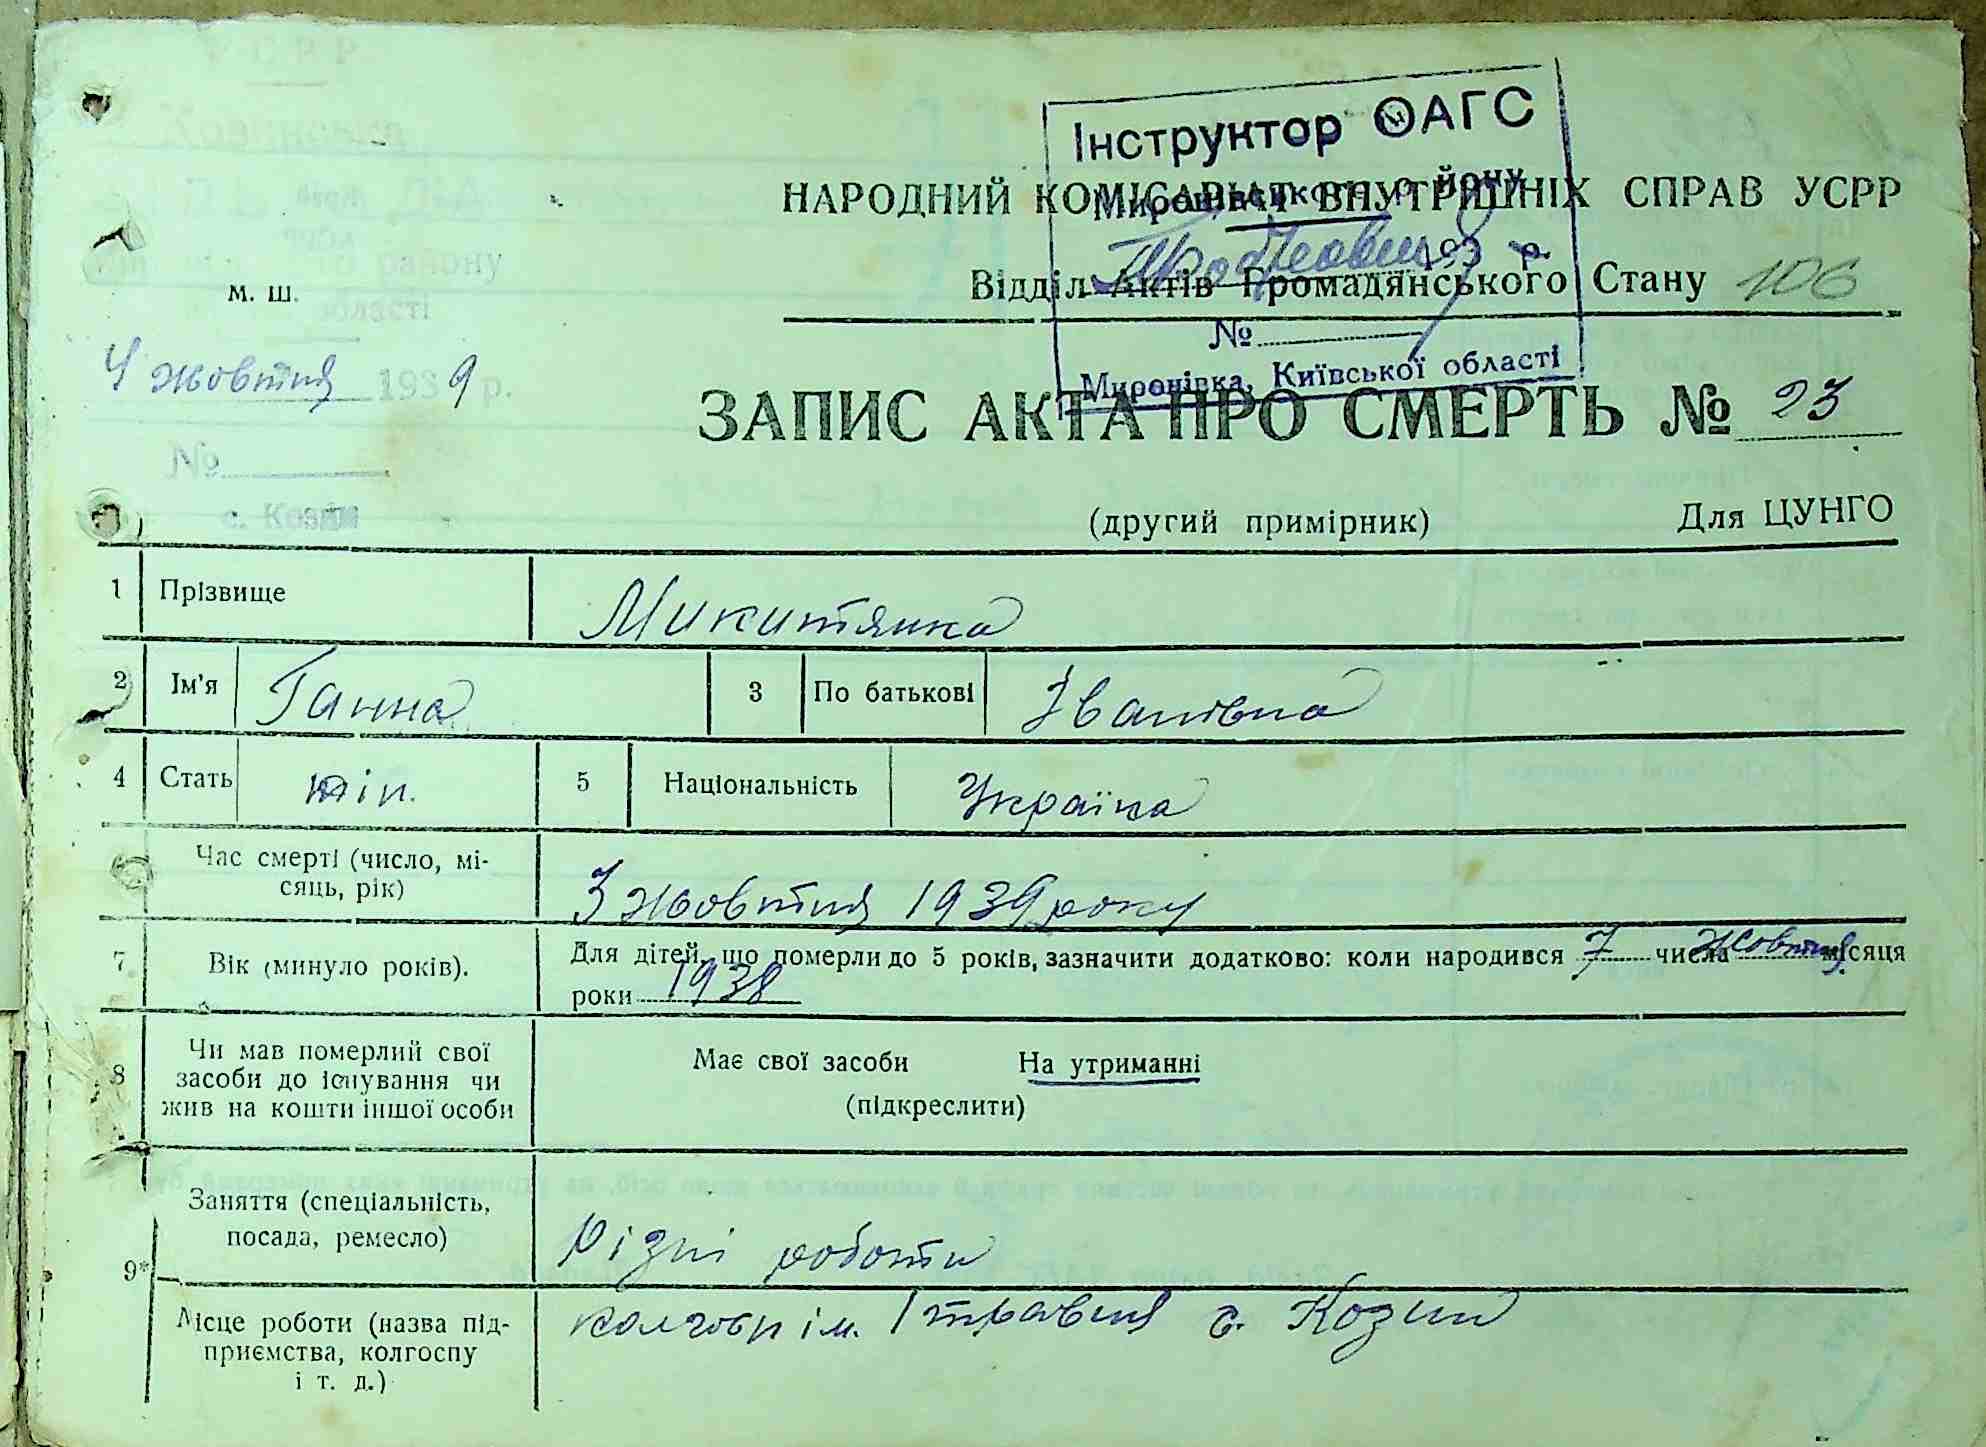 УСРР
Козинська
району
області
Інструктор ОАГС
Миронівського р йону
НАРОДНИЙ КОМІСАРІАТ ВНУТРІШНІХ СПРАВ УСРР
193 р.
м. ш.
Відділ Актів Громадянського Стану 106
№
4 жовтня 1939 р.
Миронівка, Київської області
ЗАПИС АКТА ПРО СМЕРТЬ № 23
№
с. Козин
(другий примірник) Для ЦУНГО
1 Прізвище Микитянка
2 Ім'я Ганна 3 По батькові Іванівна
4 Стать жін. 5 Національність Україка
6 Час смерті (число, мі-
сяць, рік) 3 жовтня 1939 року
7 Вік (минуло років). Для дітей, що померли до 5 років, зазначити додатково: коли народився 7 числа жовтня місяця
роки 1938
8 Чи мав померлий свої
засоби до існування чи
жив на кошти іншої особи
Має свої засоби На утриманні
(підкреслити)
9* Заняття (спеціальність,
посада, ремесло) різні роботи
Місце роботи (назва під-
приємства, колгоспу
і т. д.)
колгосп ім. 1 травня с. Козин